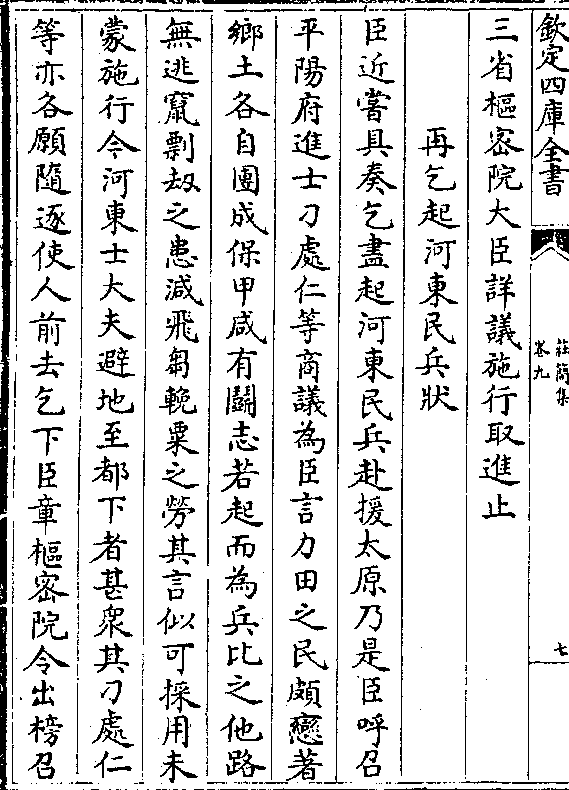 欽定四庫全書
莊簡集
卷九
七
三省樞密院大臣詳議施行取進止
再乞起河東民兵狀
臣近嘗具奏乞盡起河東民兵赴援太原乃是臣呼召
平陽府進士刁處仁等商議為臣言力田之民頗戀著
鄉土各自團成保甲咸有鬬志若起而為兵比之他路
無逃竄剽刼之患減飛芻輓粟之勞其言似可採用未
蒙施行今河東士大夫避地至都下者甚衆其刁處仁
等亦各願隨逐使人前去乞下臣章樞密院令出榜召